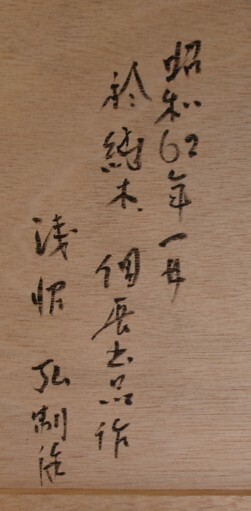 昭和62年一月
於純木 個展出品作
浅帽 弘制作